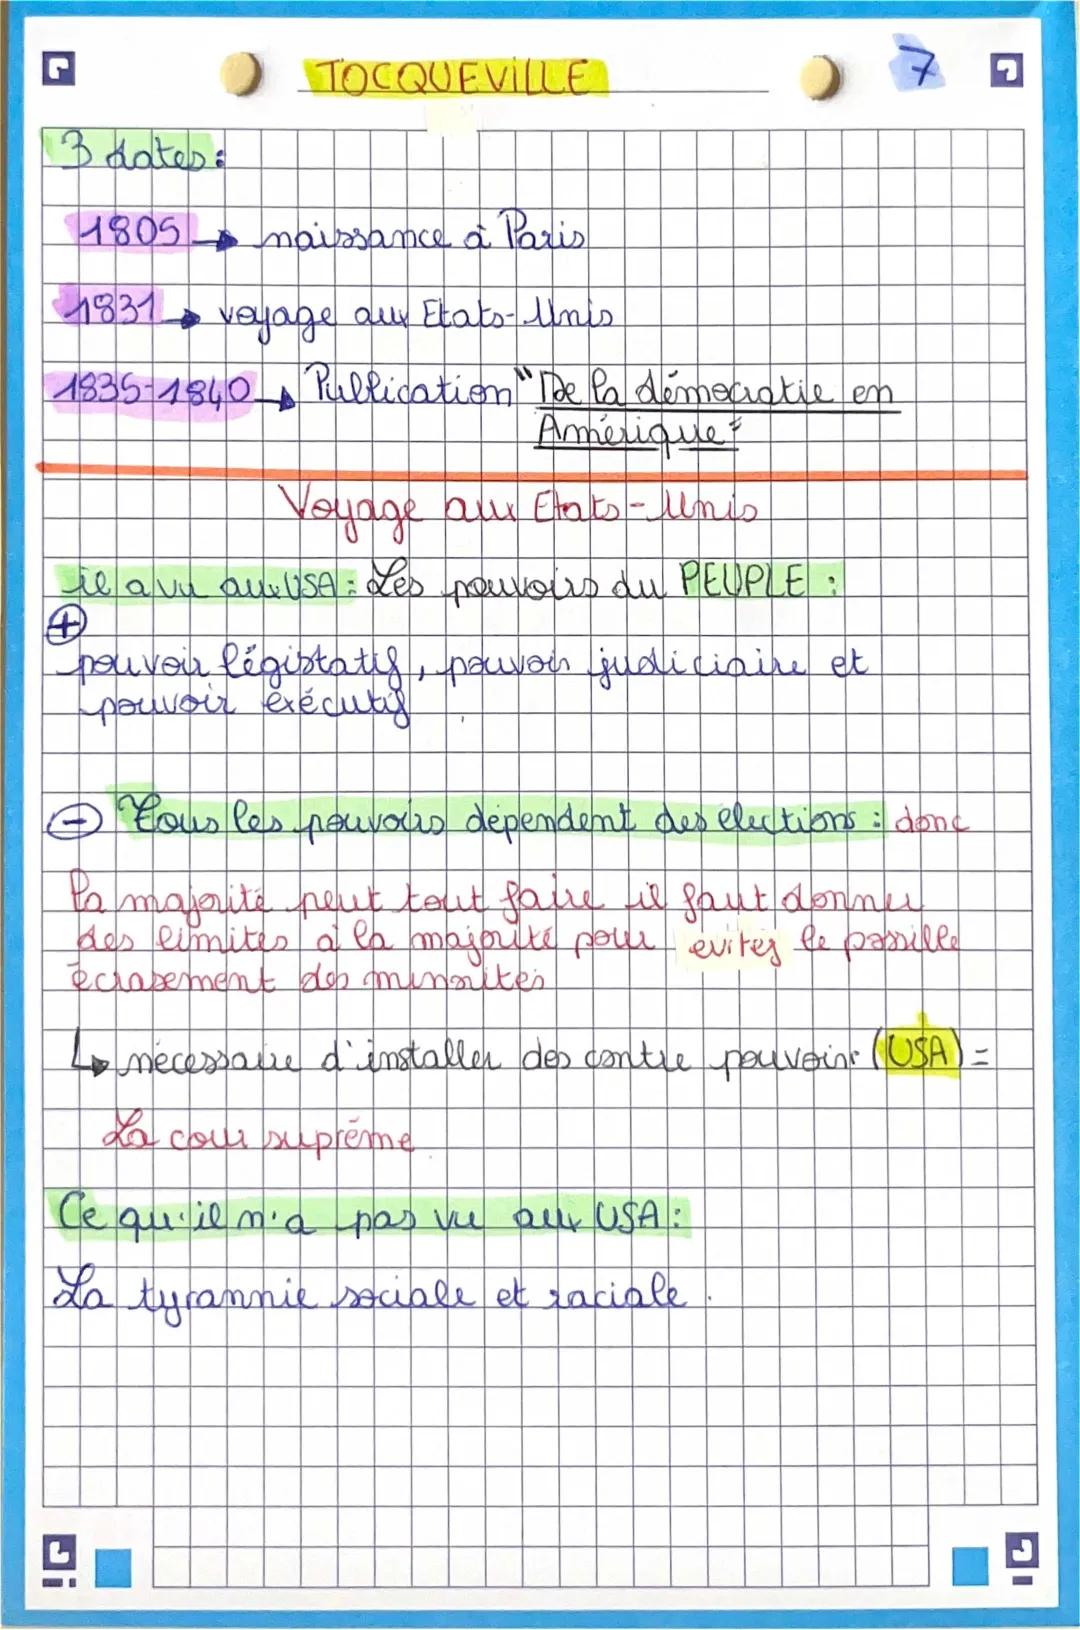 TOCQUEVILLE
7
3 dates:
1805 → naissance à Paris
1831 → voyage aux Etats-Unis
1835-1840 → Publication "De la démocratie en
Amérique"
Voyage aux Etats-Unis
il a vu aux USA : Les pouvoirs du PEUPLE :
+
pouvoir législatif, pouvoir judiciaire et
pouvoir exécutif
- Tous les pouvoirs dépendent des élections : donc
la majorité peut tout faire il faut donner
des limites à la majorité pour evites le possible
écrasement des minorités
↳ nécessaire d'installer des contre pouvoirs (USA) =
La cour suprême
Ce qu'il n'a pas vu aux USA :
La tyrannie sociale et raciale.